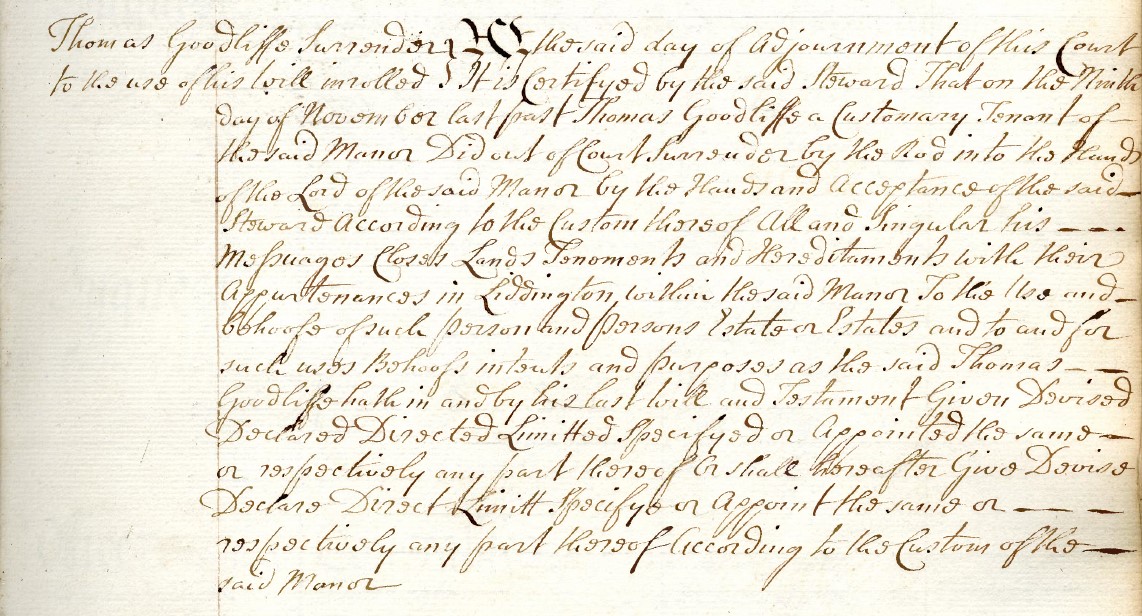 Thomas Goodliffe Surrender } At the said day of Adjournment of this Court
to the use of his Will inrolled } It is Certifyed by the said Steward That on the Ninth
day of November last past Thomas Goodliffe a Customary Tenant of
the said Manor Did out of Court Surrender by the Rod into the Hands
of the Lord of the said Manor by the Hands and Acceptance of the said
Steward According to the Custom thereof All and Singular his
Messuages Closes Lands Tenements and Hereditaments with their
Appurtenances in Liddington within the said Manor To the Use and
behoofe of such person and persons Estate or Estates and to and for
such uses Behoofs intents and purposes as the said Thomas
Goodliffe hath in and by his last Will and Testament Given Devised
Declared Directed Limitted Specifyed or Appointed the same
or respectively any part thereof Or shall hereafter Give Devise
Declare Direct Limitt Specifye or Appoint the same or
respectively any part thereof According to the Custom of the
said Manor